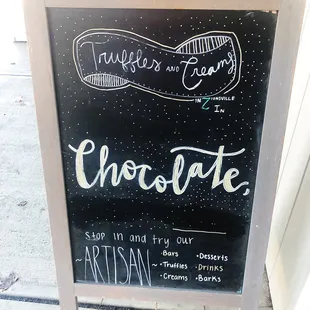 Truffles AND Creams
IN ZIONSVILLE
IN
Chocolate,
STOP in and try our
~ARTISAN~
• Bars • Desserts
• Truffles • Drinks
• Creams • Barks